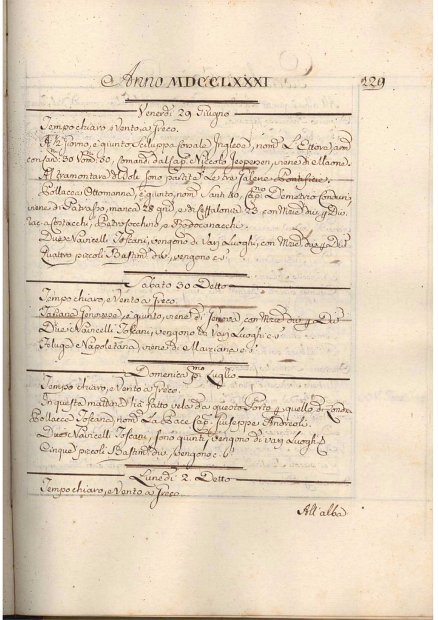 Anno MDCCLXXXI
129
Venerdì 29 Giugno
Tempo chiaro, e Vento, a Greco.
è giunto Sciluppa Corsale Inglese, nom.ª L'Ettore, arm.
con 30 Vom. 80, Comand. dal Cap. Niccolò viene di Maone.
Al tramontare del Sole sono partite le tre Galere Pontificie.
Pollacca Ottomanna, è giunto, nom. Cap.no Demetrio
viene di Patrasso, manca 28 gni, e di Ceffalonia 23 con Mrzie div. p Div.
e Rodocanacchi.
Due Navicelli Toscani, vengono di Varj Luoghi, con Mrzie div. p Div.
Quattro piccoli Bastim. div. vengono c. s.
Sabato 30 Detto
Tempo chiaro, e Vento a Greco.
Tartana Genovese, è giunto, viene di Genova, con Mrzie div. p Div.
Due Navicelli Toscani, vengono da Varj Luoghi c. s.
Feluga Napoletana, viene di Marziana c. s.
Domenica p.mo Luglio
Tempo chiaro, e Vento a Greco.
In questa mattina Hà Fatto vela da questo Porto p. quello di Londra
Pollacca Toscana, nom. La Pace Cap. Giuseppe Andreoli.
Due Navicelli Toscani, sono giunti, vengono di varj Luoghi
Cinque piccoli Bastim. div. vengono c. s.
Lunedì 2. Detto
Tempo chiaro, e Vento a Greco.
All'alba